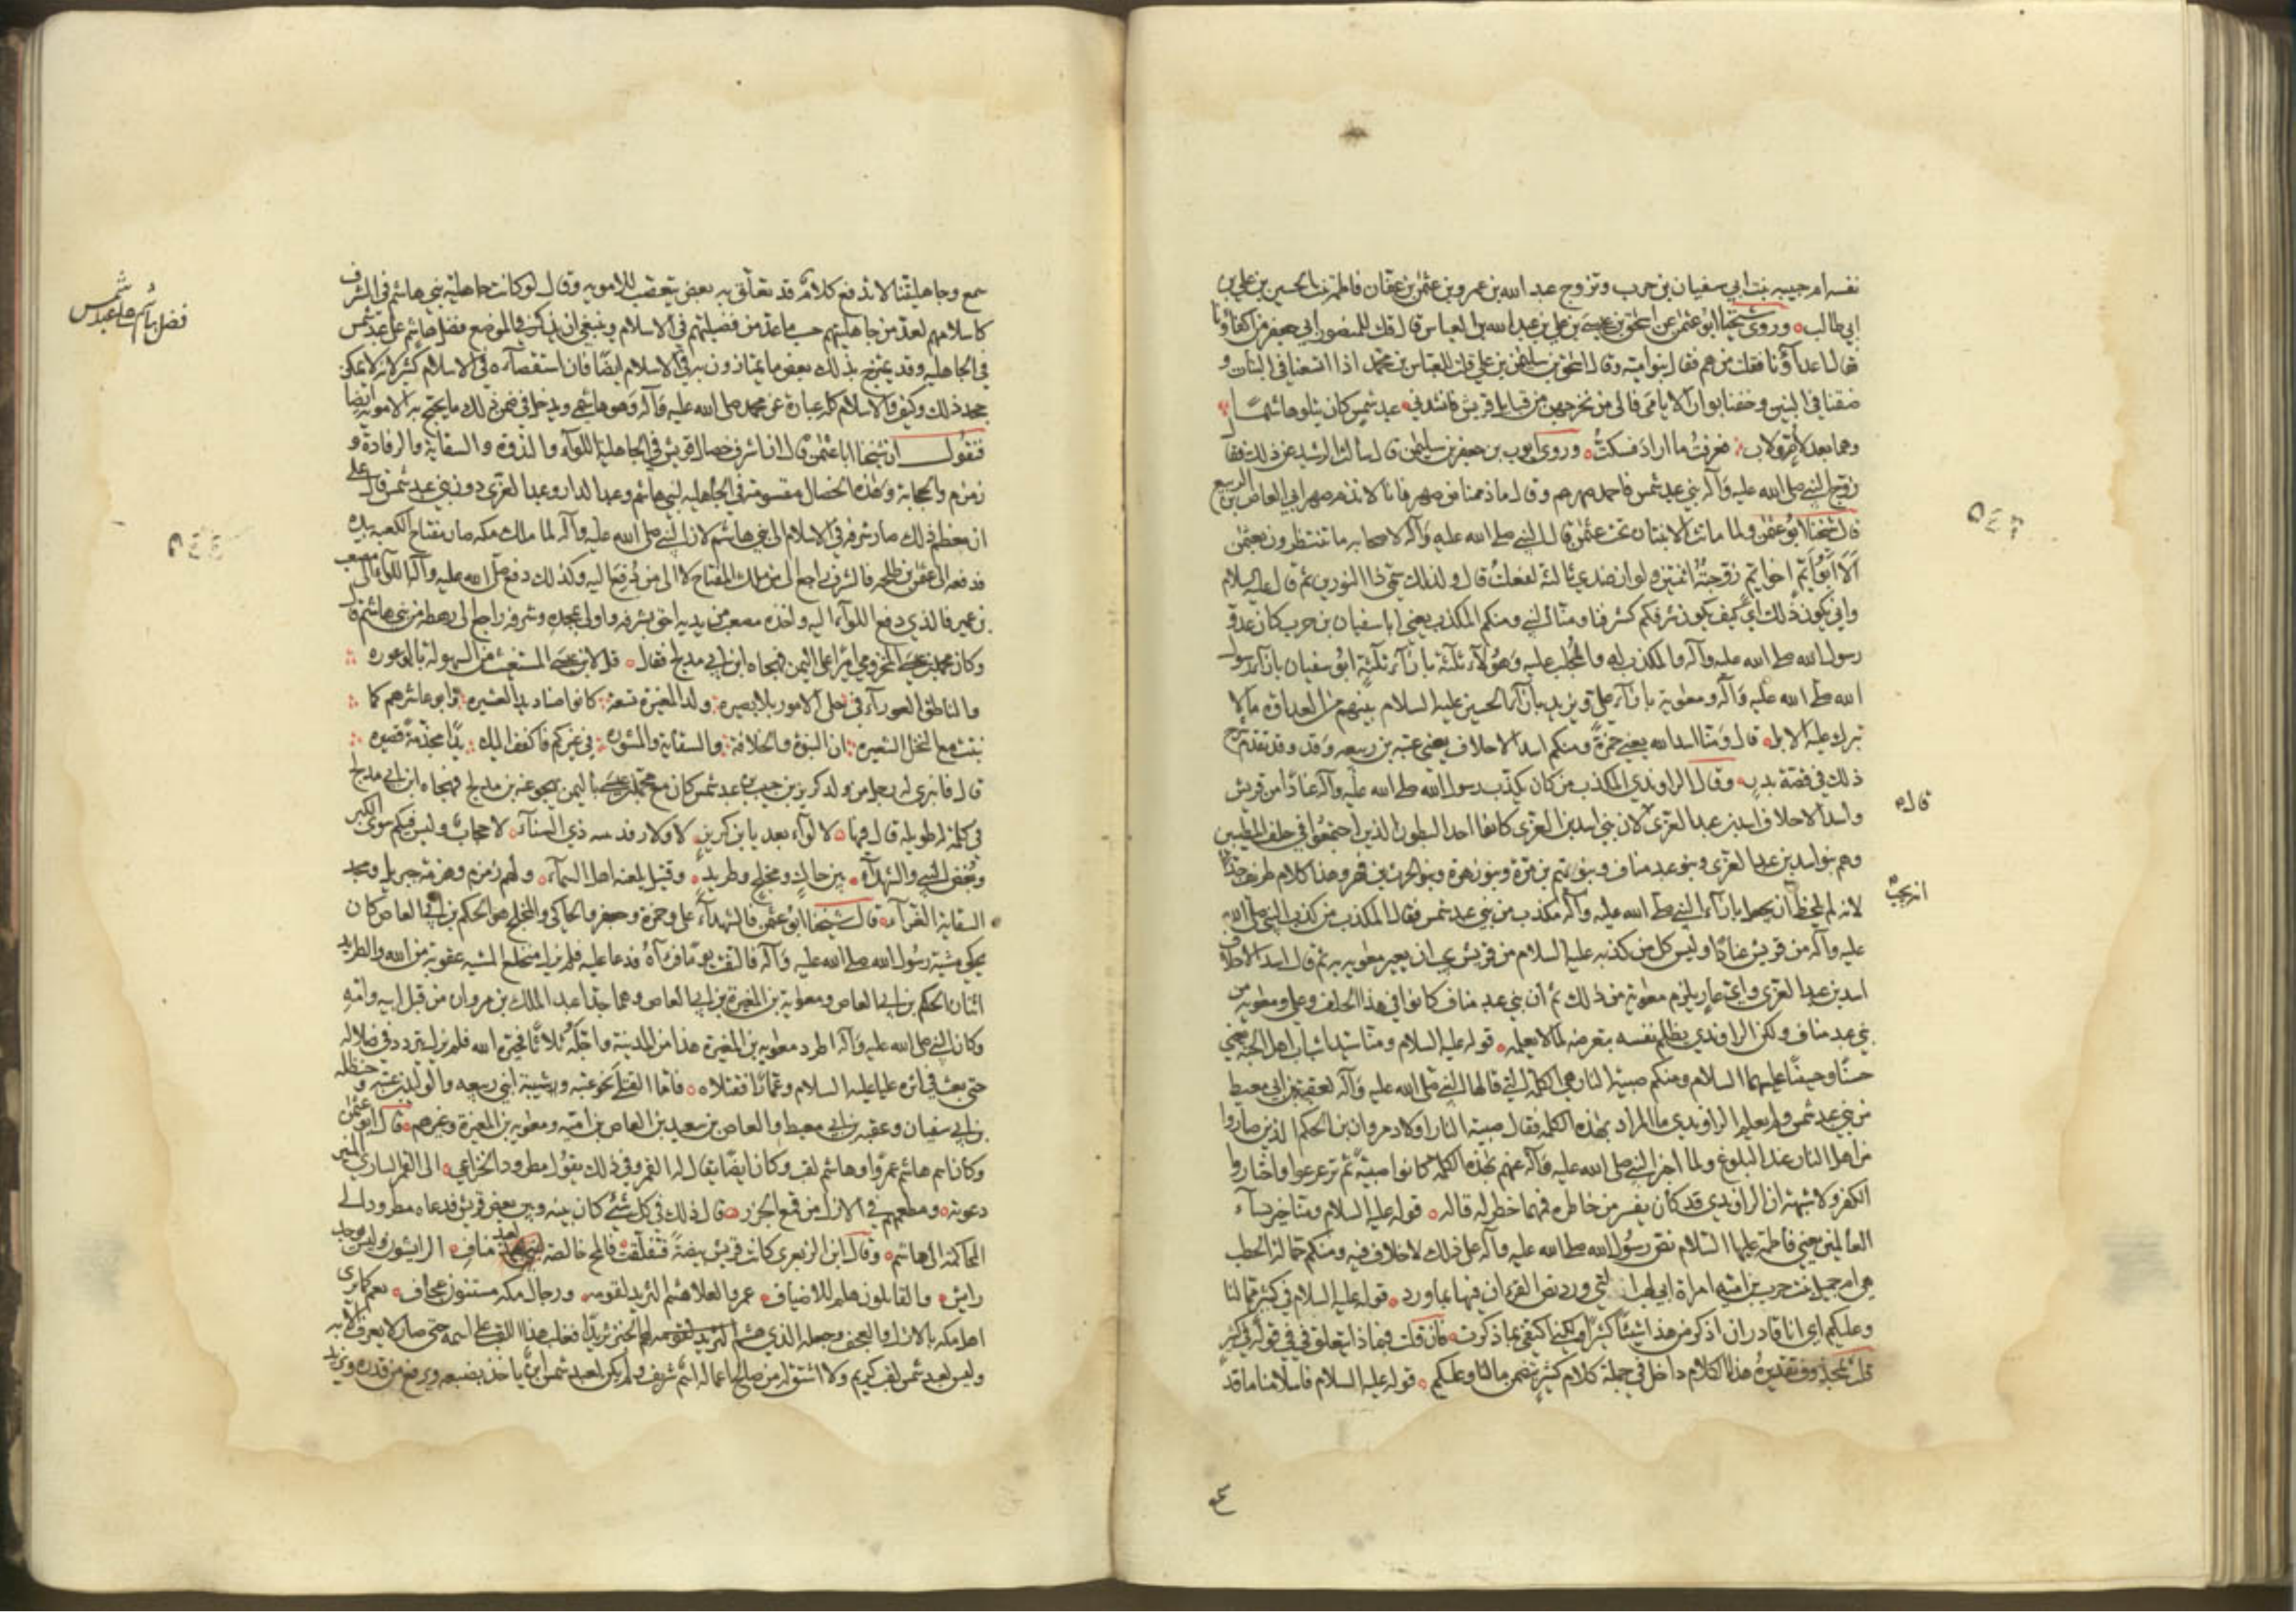 نفسه ام حبيبه بنت ابي سفيان بن حرب وتزوج عبد الله بن عمرو بن عثمن بن عفان فاطمة بنت الحسين بن علي بن
ابي طالب وروى شيخنا ابو عثمن عن اسحق بن عيسى بن علي بن عبد الله بن العباس قال قلت للمنصور ابي جعفر من اكفاؤنا
فقال اعداؤنا فقلت من هم فقال بنو امية وقال اسحق بن سليمن بن علي قلت للعباس بن محمد اذا اتسعنا في البنات و
ضقنا في البنين وخفنا بوار الايامى فالى من نخرجهن من قبايل قريش فانشدني عبد شمس كان يتلو هاشما
وهما بعد لام ولاب فعرفت ما اراد فسكت وروى ايوب بن جعفر بن سليمن قال سالت الرشيد عن ذلك فقال
زوج النبي صلى الله عليه وآله بني عبد شمس فاحمد صهرهم وقال ما ذممنا من صهر فانا لا نذم صهر ابي العاص بن الربيع
قال شيخنا ابو عثمن ولما ماتت الابنتان تحت عثمن قال النبي صلى الله عليه وآله لاصحابه ما تنتظرون بعثمن
الا ابو ايم الا اخو ايم زوجته اثنتين ولو ان عندي ثالثة لفعلت قال ولذلك سمى ذا النورين ثم قال عليه السلام
وانى يكون ذلك اي كيف يكون شرفكم كشرفنا ومنا النبي ومنكم المكذب يعني ابا سفيان بن حرب كان عدو
رسول الله صلى الله عليه وآله والمكذب له والمجلب عليه وهؤلاء ثلثة بازآء ثلثة ابو سفيان بازآء رسول
الله صلى الله عليه وآله ومعوية بازآء علي ويزيد بازآء الحسين عليه السلام بينهم من العداوة ما لا
تبرك عليه الابل قال ومنا اسد الله يعني حمزة ومنكم اسد الاحلاف يعني عتبة بن ربيعه وقد تقدم شرح
ذلك في قصة بدر وقال الراوندي المكذب من كان يكذب رسول الله صلى الله عليه وآله عنادا من قريش
واسد الاحلاف اسد بن عبد العزى قال لان بني اسد بن العزى كانوا احد البطون الذين اجتمعوا في حلف المطيبين
وهم بنو اسد بن عبد العزى وبنو عبد مناف وبنو تيم بن مرة وبنو زهرة وبنو الحرث بن فهر وهذا كلام طريف جدا
لانه لم يلحظ انه يجب ان يجعل بازآء النبي صلى الله عليه وآله مكذب من بني عبد شمس فقال المكذب من كذب النبي صلى الله
عليه وآله من قريش عنادا وليس كل من كذبه عليه السلام من قريش يجب ان يعير معوية به ثم قال اسد الاحلاف
اسد بن عبد العزى واي عار يلزم معوية من ذلك ثم ان بني عبد مناف كانوا في هذا الحلف وعلي ومعوية من
بني عبد مناف ولكن الراوندي يظلم نفسه بتعرضه لما لا يعلمه قوله عليه السلام ومنا سيدا شباب اهل الجنة يعني
حسنا وحسينا عليهما السلام ومنكم صبية النار وهي الكلمة التي قالها النبي صلى الله عليه وآله لعقبة بن ابي معيط
من بني عبد شمس ولم يعلم الراوندي ما المراد بهذه الكلمة فقال صبية النار اولاد مروان بن الحكم الذين صاروا
من اهل النار عند البلوغ ولما اخبر النبي صلى الله عليه وآله عنهم بهذه الكلمة كانوا صبية ثم ترعرعوا واختاروا
الكفر ولا شبهة ان الراوندي قد كان يفسر من خاطره فمهما خطر له قاله قوله عليه السلام ومنا خير نسآء
العالمين يعني فاطمة عليها السلام نص رسول الله صلى الله عليه وآله على ذلك لا خلاف فيه ومنكم حمالة الحطب
هي ام جميل بنت حرب بن امية امراة ابي لهب التي ورد نص القران فيها بما ورد قوله عليه السلام في كثير مما لنا
وعليكم اي انا قادر ان اذكر من هذا شيئا كثيرا لكني اكتفي بما ذكرت فان قلت فبماذا يتعلق في في قوله في كثير
قلت بمحذوف تقديره هذا الكلام داخل في جملة كلام كثير يتضمن ما لنا وعليكم قوله عليه السلام فاسلامنا ما قد
قاله
انه يجب
٥٤٣
سمع وجاهليتنا لا تدفع كلام قد تعلق به بعض يتعصب للاموية وقال لو كانت جاهلية بني هاشم في الشرف
كاسلامهم لعد من جاهليتهم حسب ما عد من فضيلتهم في الاسلام وينبغي ان نذكر في الموضع فضل هاشم على عبد شمس
في الجاهلية وقد يمتزج بذلك بعض ما يمتازون به في الاسلام ايضا فان استقصآءه في الاسلام كثير لانه لا يمكن
جحد ذلك وكيف والاسلام كله عبارة عن محمد صلى الله عليه وآله وهو هاشمي ويدخل في ضمن ذلك ما يحتج به الاموية ايضا
فنقول ان شيخنا ابا عثمن قال ان اشرف خصال قريش في الجاهلية اللوآء والندوة والسقاية والرفادة و
زمزم والحجابة وهذه الخصال مقسومة في الجاهلية لبني هاشم وعبد الدار وعبد العزى دون بني عبد شمس قال على
ان معظم ذلك صار شرفه في الاسلام الى بني هاشم لان النبي صلى الله عليه وآله لما ملك مكه صار مفتاح الكعبه بيده
فدفعه الى عثمن بن طلحه فالشرف راجع الى من ملك المفتاح لا الى من دفع اليه وكذلك دفع صلى الله عليه وآله اللوآء الى مصعب
بن عمير فالذي دفع اللوآء اليه واخذه مصعب من يديه احق بشرفه واولى بمجده وشرفه راجع الى رهطه من بني هاشم قال
وكان محمد بن عيسى المخزومي اميرا على اليمن فهجاه ابن ابي مدلج فقال قل لابن عيسى المستغيث من السهولة بالوعوره
والناطق العورآء في جل الامور بلا بصيره ولد المغيرة تسعة كانوا صناديد العشيره وابو عاشرهم كما
نبتت مع النخل الشعيره ان النبوة والخلافة والسقاية والمشوره في غيركم فاكفف اليك يدا مجذمة قصيره
قال فانبرى له رجل من ولد كريز بن حبيب بن عبد شمس كان مع محمد بن عيسى باليمن يهجو عنه ابن مدلج فهجاه ابن ابي مدلج
في كلمة له طويله قال فيها لا لوآء بعد يا ابن كريز لا ولا رفد بيته ذي السنآء لا حجاب وليس فيكم سوى الكبر
وبغض النبي والشهدآء بين حاك ومخلج وطريد وقتيل يلعنه اهل السمآء ولهم زمزم وهزمة جبريل ومجد
السقاية الغرآء قال شيخنا ابو عثمن فالشهدآء علي وحمزة وجعفر والحاكي والمخلج هو الحكم بن ابي العاص كان
يحكي مشية رسول الله صلى الله عليه وآله فالتفت يوما فرآه فدعا عليه فلم يزل مخلج المشيه عقوبة من الله والطريد
اثنان الحكم بن ابي العاص ومعوية بن المغيرة بن ابي العاص وهما جدا عبد الملك بن مروان من قبل ابيه وامه
وكان النبي صلى الله عليه وآله طرد معوية بن المغيرة هذا من المدينة واجله ثلاثا فحيره الله فلم يزل يتردد في ضلاله
حتى بعث في اثره عليا عليه السلام وعمارا فقتلاه فاما القتلى نحو عتبه وشيبة ابني ربيعه والوليد بن عتبه وحنظله
بن ابي سفيان وعقبه بن ابي معيط والعاص بن سعيد بن العاص بن امية ومعوية بن المغيرة وغيرهم قال ابو عثمن
وكان اسم هاشم عمروا وهاشم لقب وكان ايضا يقال له القمر وفي ذلك يقول مطرود الخزاعي الى القمر الساري المنير
دعوته ومطعمهم في الازل من قمع الجزر قال ذلك في كل شئ كان بينه وبين بعض قريش فدعاه مطرود الى
المحاكمة الى هاشم وقال ابن الزبعرى كانت قريش بيضة فتفلقت فالمح خالصه لعبد مناف الرايشون وليس يوجد
رايش والقايلون هلم للاضياف عمرو العلا هشم الثريد لقومه ورجال مكه مسنتون عجاف نعم كما يرى
اهل مكه بالازل والعجف وجعله الذي هشم الثريد لقومه لهم الخبز ثريدا فغلب هذا اللقب على اسمه حتى صار لا يعرف الا به
وليس لعبد شمس لقب كريم ولا اشتق له من صالح اعماله اسم شريف ولم يكن لعبد شمس ابن ياخذ بضبعه ويرفع من قدره ويزيد
فضل هاشم على عبد شمس
٥٤٤